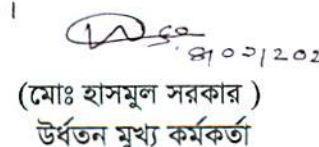 (মোঃ হাসমুল সরকার )
উর্ধতন মুখ্য কর্মকর্তা